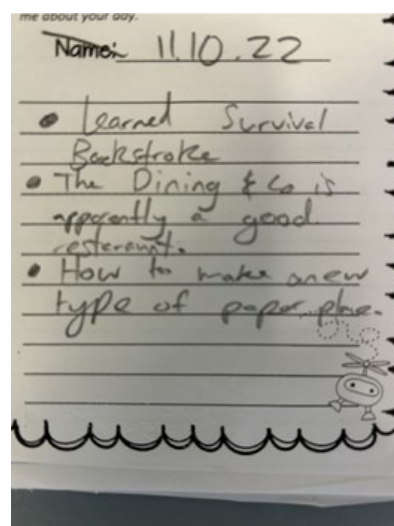 me about your day.
Name: 11.10.22
• Learned Survival
Backstroke
• The Dining & Co is
apparently a good
resteraunt.
• How to make a new
type of paper plane.